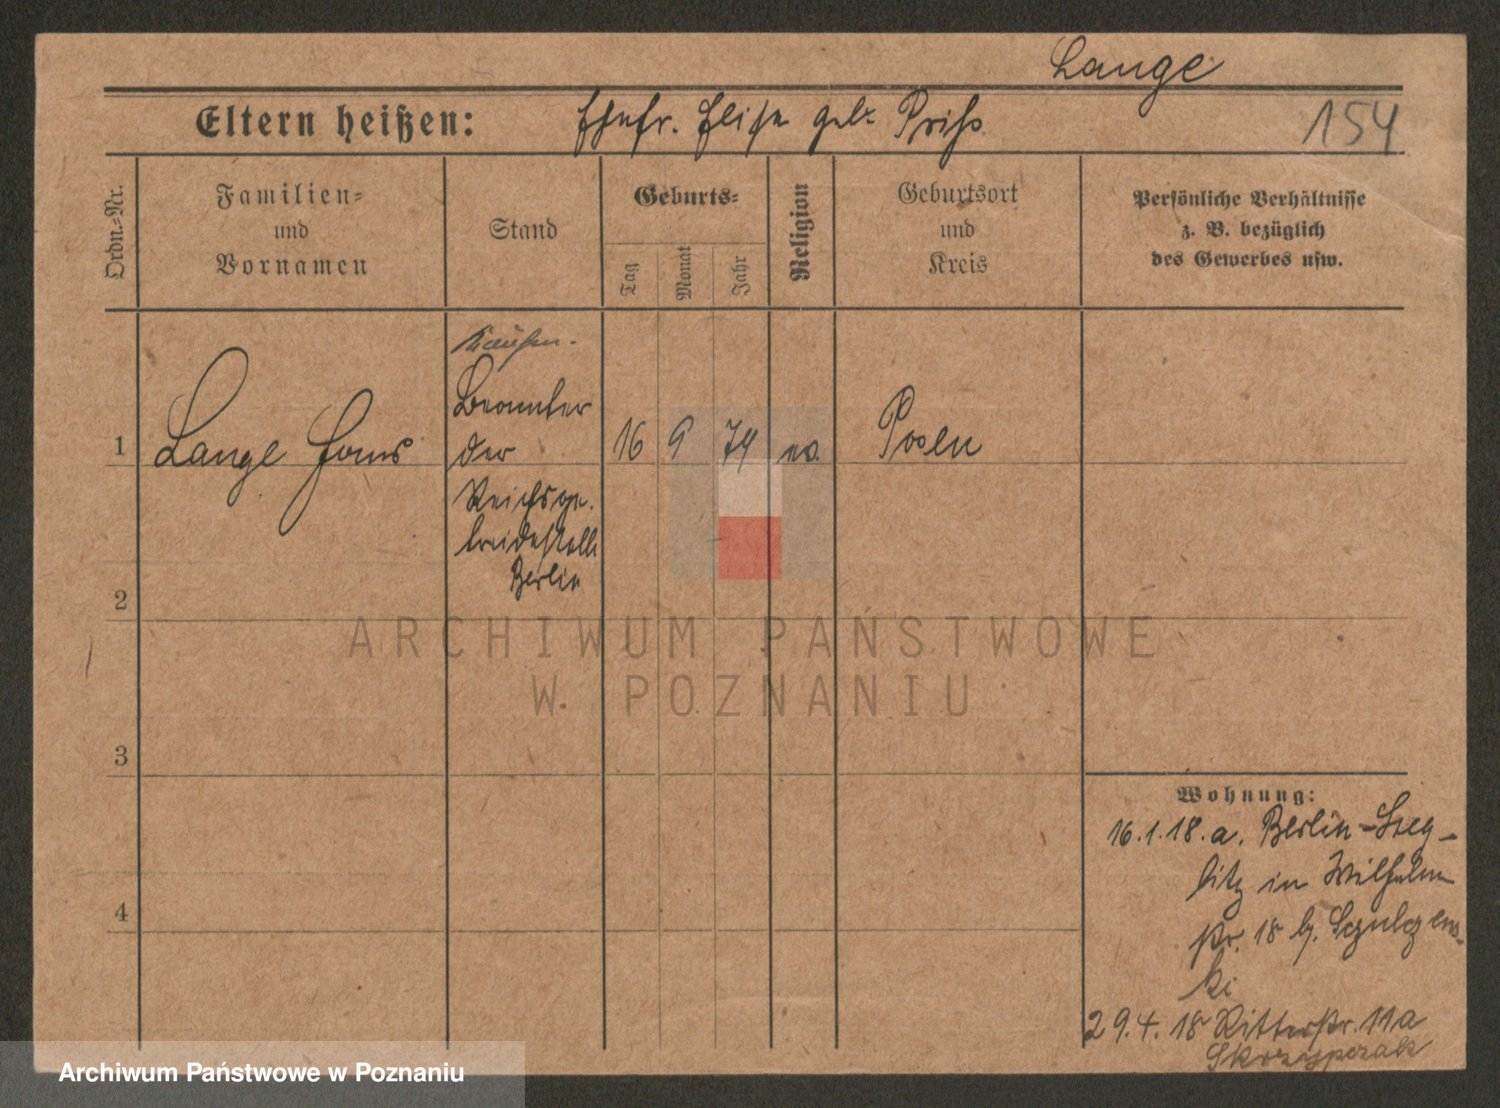 Lange
Eltern heißen: Ehefr. Elise geb. Priß
154
Ordn.-Nr.
Familien-
und
Vornamen
Stand
Geburts-
Tag
Monat
Jahr
Religion
Geburtsort
und
Kreis
Persönliche Verhältnisse
z. B. bezüglich
des Gewerbes usw.
1 Lange 16 9 74 ev. Posen
Beamter
der
Reichsge-
treidestelle
Berlin
2
3
4
Wohnung:
16.1.18. a. Berlin-Steg-
litz in Wilhelm
str. 18 b.
ki
29.4.18 Ritterstr. 11a
Skrzypczak
ARCHIWUM PAŃSTWOWE
W POZNANIU
Archiwum Państwowe w Poznaniu